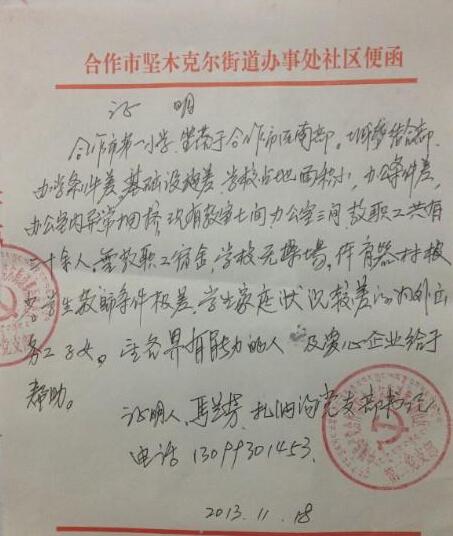 合作市坚木克尔街道办事处社区便函
证 明
合作市第一小学, 坐落于合作市区南部。城乡结合部
办学条件差, 基础设施差, 学校占地面积小, 办公条件差,
办公室内异常拥挤, 设有教室七间, 办公室三间, 教职工共有
三十余人, 无教职工宿舍, 学校无操场, 体育器材
学生教师条件极差, 学生家庭状况较差
务工子女, 各界有能力的人 及爱心企业给于
帮助。
证明人, 马兰芳, 党支部书记
电话 13099301453.
2013.11.18